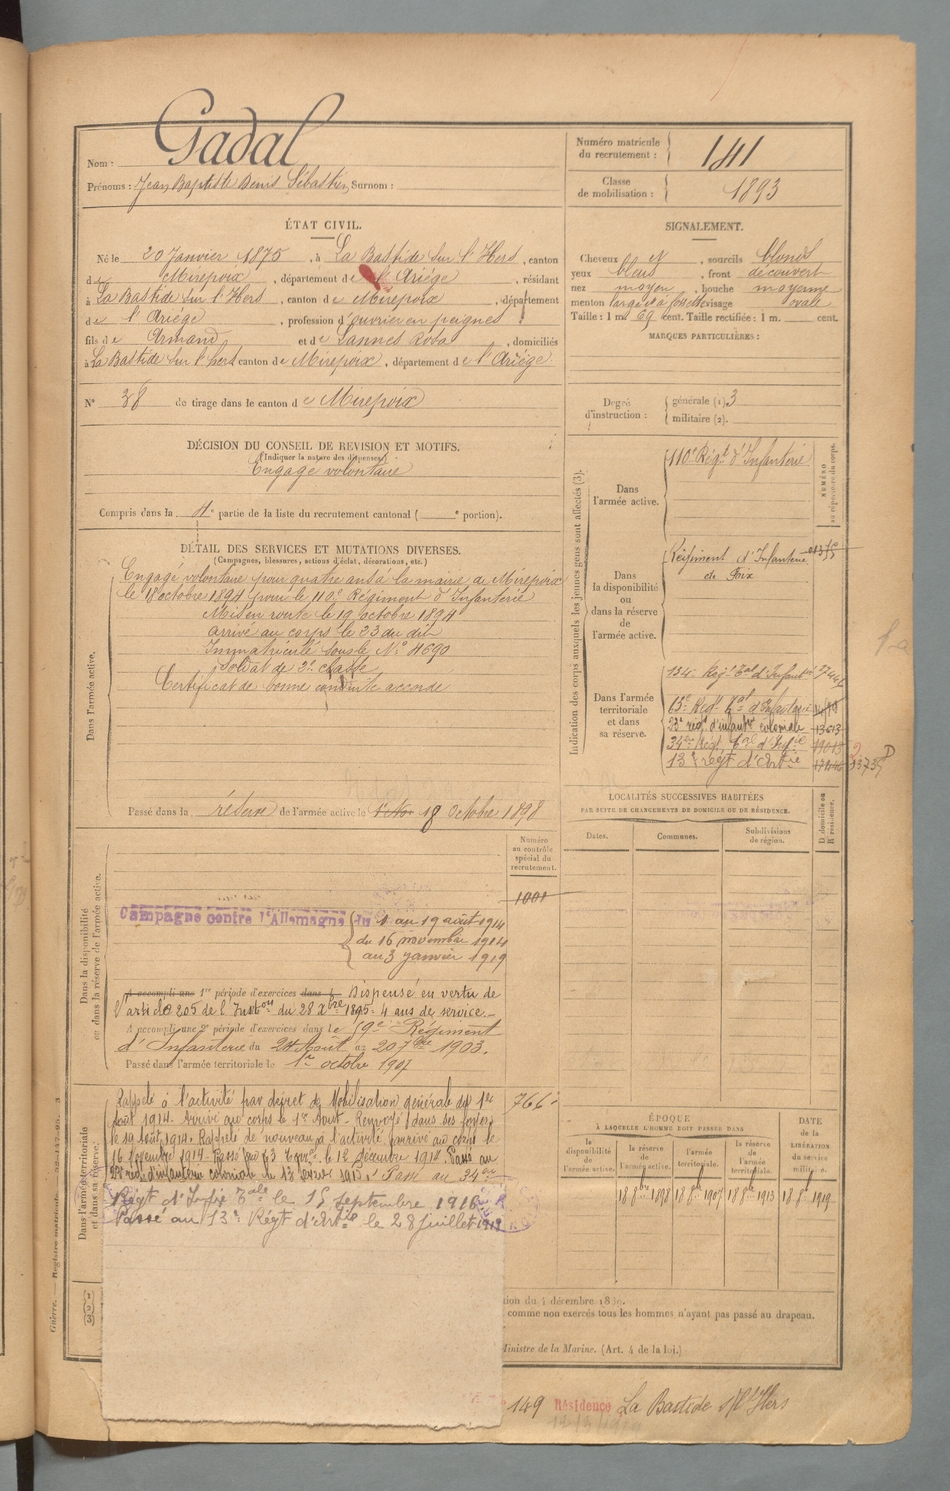 Nom : Gadal
Prénoms : Jean Baptiste Denis Sébastien, Surnom :
Numéro matricule du recrutement : 141
Classe de mobilisation : 1893
ÉTAT CIVIL.
Né le 20 Janvier 1875, à La Bastide sur l'Hers, canton
de Mirepoix, département de l'Ariége, résidant
à La Bastide sur l'Hers, canton de Mirepoix, département
de l'Ariège, profession d'ouvrier en peignes
fils de Armand et de Lannes Rosa, domiciliés
à La Bastide sur l'hers canton de Mirepoix, département de l'Ariège
N° 38 de tirage dans le canton de Mirepoix
SIGNALEMENT.
Cheveux et, sourcils blonds
yeux bleus, front découvert
nez moyen, bouche moyenne
menton large et à fossette visage ovale
Taille : 1 m. 69 cent. Taille rectifiée : 1 m. cent.
MARQUES PARTICULIÈRES :
Degré d'instruction : générale (1). 3
militaire (2).
DÉCISION DU CONSEIL DE REVISION ET MOTIFS.
(Indiquer la nature des dispenses)
Engagé volontaire
Compris dans la 4e partie de la liste du recrutement cantonal ( e portion).
DÉTAIL DES SERVICES ET MUTATIONS DIVERSES.
(Campagnes, blessures, actions d'éclat, décorations, etc.)
Dans l'armée active.
Engagé volontaire pour quatre ans à la mairie de Mirepoix
le 18 octobre 1894 pour le 110e Régiment d'Infanterie
Mis en route le 19 octobre 1894
arrivé au corps le 23 du dit
Immatriculé sous le N° 4690
Soldat de 2e classe
Certificat de bonne conduite accordé
Passé dans la réserve de l'armée active le 18 Octobre 1898
Indication des corps auxquels les jeunes gens sont affectés (3).
NUMÉRO au répertoire du corps.
Dans l'armée active.
110e Régt d'Infanterie
Dans la disponibilité ou dans la réserve de l'armée active.
Régiment d'Infanterie
de Foix
Dans l'armée territoriale et dans sa réserve.
134e Regt Tal d'Infanterie
63e Regt Tal d'Infanterie
23e regt d'infantie coloniale 13613
34e Régt Tal d'Infie
13e régt d'Artie
LOCALITÉS SUCCESSIVES HABITÉES
PAR SUITE DE CHANGEMENTS DE DOMICILE OU DE RÉSIDENCE.
Dates.
Communes.
Subdivisions de région.
D domicile ou R résidence.
Numéro au contrôle spécial du recrutement.
1001
Dans la disponibilité ou dans la réserve de l'armée active.
Campagne contre l'Allemagne du 1 au 19 août 1914
du 16 novembre 1914
au 3 janvier 1919
A accompli une 1re période d'exercices dans le Dispensé en vertu de
l'article 205 de l'Instion du 28 Xbre 1895. 4 ans de service.
A accompli une 2e période d'exercices dans le 59e Régiment
d'Infanterie du 24 Août au 20 7bre 1903.
Passé dans l'armée territoriale le 1er octobre 1907
Dans l'armée territoriale et dans sa réserve.
Rappelé à l'activité par décret de Mobilisation générale du 1er
août 1914. Arrivé au corps le 1er Aout. Renvoyé dans ses foyers
le 19 août 1914. Rappelé de nouveau à l'activité et arrivé au corps le
16 novembre 1914. Passé au 63e Terral le 12 décembre 1914. Passé au
23e regt d'infanterie coloniale le 13 1915. Passé au 34e
Régt d'Infie Tale le 15 Septembre 1916
Passé au 13e Régt d'Artie le 28 juillet
766
ÉPOQUE
À LAQUELLE L'HOMME DOIT PASSER DANS
la disponibilité de l'armée active.
la réserve de l'armée active.
l'armée territoriale.
la réserve de l'armée territoriale.
DATE de la LIBÉRATION du service militaire.
18 8bre 1898
18 8bre 1907
18 8bre 1913
18 8bre 1919
comme non exercés tous les hommes n'ayant pas passé au drapeau.
Ministre de la Marine. (Art. 4 de la loi.)
149 Résidence La Bastide s/ l'Hers